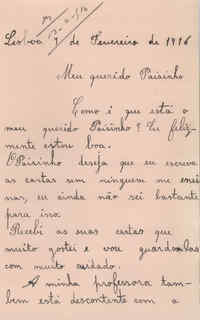 Lisboa 7 de Fevereiro de 1916
Meu querido Paisinho
Como é que está o
meu querido Paisinho? Eu feliz-
mente estou boa.
O Paisinho deseja que eu escreva
as cartas sem ninguem me ensi
nar, eu ainda não sei bastante
para isso.
Recebi as suas cartas que
muito gostei e vou guardal-as
com muito cuidado.
A minha professora tam-
bem está descontente com a